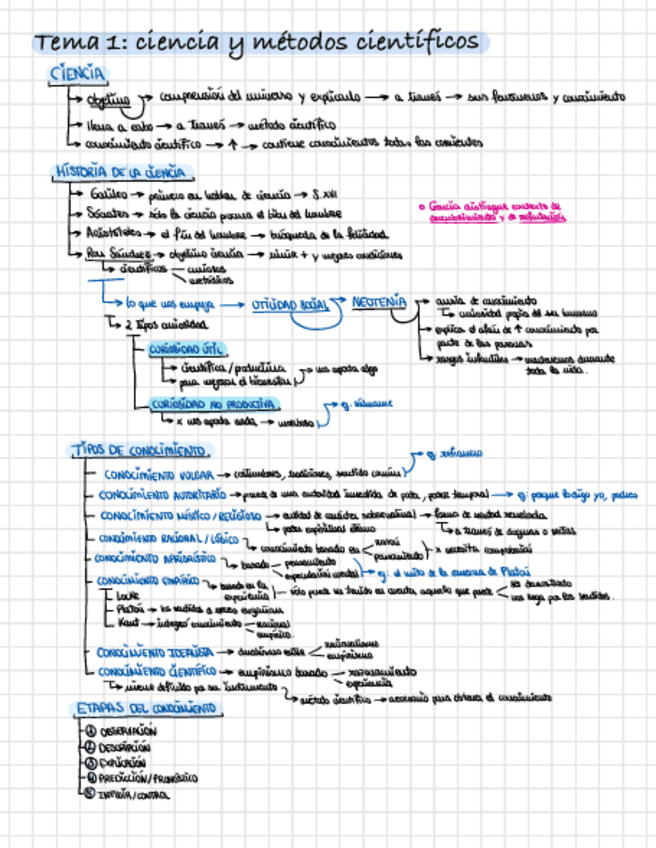 Tema 1: ciencia y métodos científicos
CIENCIA
objetivo → comprensión del universo y explicarlo → a través → sus fenómenos y conocimiento
lleva a cabo → a través → método científico
conocimiento científico → ↑ → contiene conocimientos todas las corrientes
HISTORIA DE LA CIENCIA
Galileo → primero en hablar de ciencia → S. XVI
Sócrates → sólo la ciencia procura el bien del hombre
Aristóteles → el fin del hombre → búsqueda de la felicidad
Ron Sánchez → objetivo ciencia → vivir + y mejores condiciones
científicos — curiosos
metódicos
García distingue contexto de
descubrimiento y de refutación
lo que nos empuja → UTILIDAD SOCIAL → NEOTENIA → ansia de conocimiento
curiosidad propia del ser humano
explica el afán de ↑ conocimiento por
parte de las personas
rasgos infantiles → mantenemos durante
toda la vida.
2 tipos curiosidad
CURIOSIDAD ÚTIL
científica/productiva → nos aporta algo
para mejorar el bienestar
CURIOSIDAD NO PRODUCTIVA
x nos aporta nada → morboso → ej:
TIPOS DE CONOCIMIENTO
CONOCIMIENTO VULGAR → costumbres, tradiciones, sentido común → ej: refranero
CONOCIMIENTO AUTORITARIO → procede de una autoridad investida de poder, poder temporal → ej: porque lo digo yo, padres
CONOCIMIENTO MÍSTICO/RELIGIOSO → entidad de carácter sobrenatural → forma de verdad revelada
poder espiritual eterno → a través de dogmas o sectas
CONOCIMIENTO RACIONAL/LÓGICO → conocimiento basado en razón
pensamiento → x necesita comprobación
CONOCIMIENTO APRIORÍSTICO → basado pensamiento
especulación mental → ej: el mito de la caverna de Platón
CONOCIMIENTO EMPÍRICO → basado en la
experiencia → sólo puede ser tenido en cuenta aquello que puede ser demostrado
nos llega por los sentidos.
Locke
Platón → los sentidos a veces engañan
Kant → integró conocimiento racional
empírico.
CONOCIMIENTO IDEALISTA → dualismo entre racionalismo
empirismo
CONOCIMIENTO CIENTÍFICO → empirismo basado razonamiento
experiencia
viene definido por su instrumento → método científico → necesario para obtener el conocimiento
ETAPAS DEL CONOCIMIENTO
① OBSERVACIÓN
② DESCRIPCIÓN
③ EXPLICACIÓN
④ PREDICCIÓN/PRONÓSTICO
⑤ /CONTROL